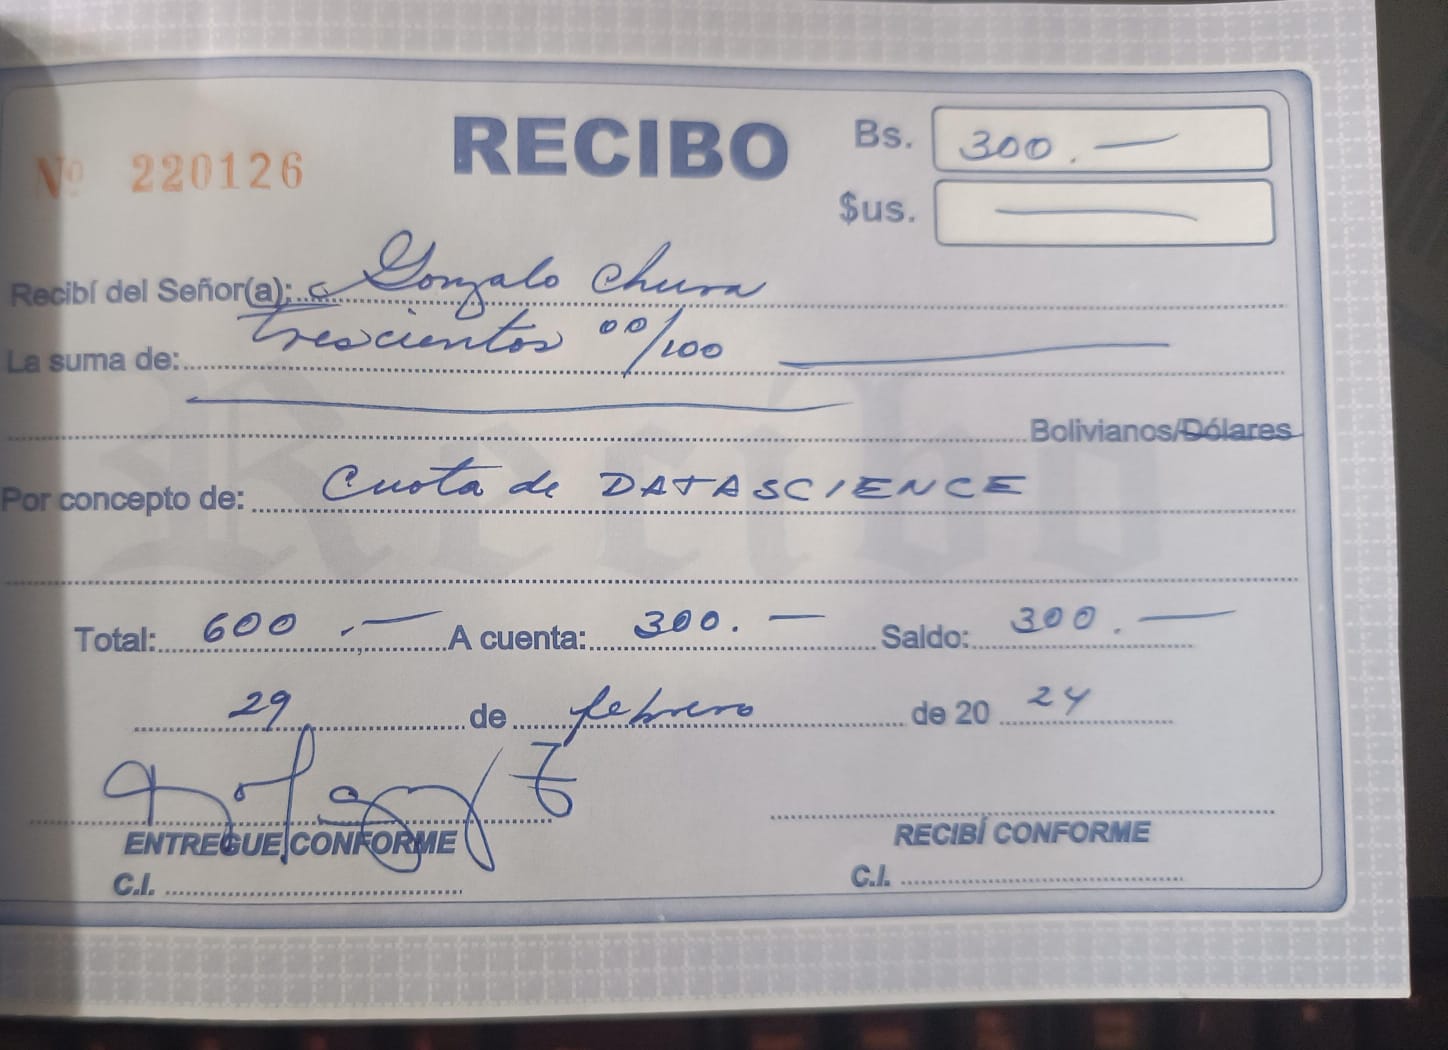 RECIBO
Nº 220126
Bs. 300.—
$us. —
Recibí del Señor(a): Gonzalo Chura
La suma de: trescientos 00/100
Bolivianos/Dólares
Por concepto de: Cuota de DATASCIENCE
Total: 600.— A cuenta: 300.— Saldo: 300.—
29 de febrero de 20 24
ENTREGUE CONFORME RECIBÍ CONFORME
C.I. C.I.
Recibo